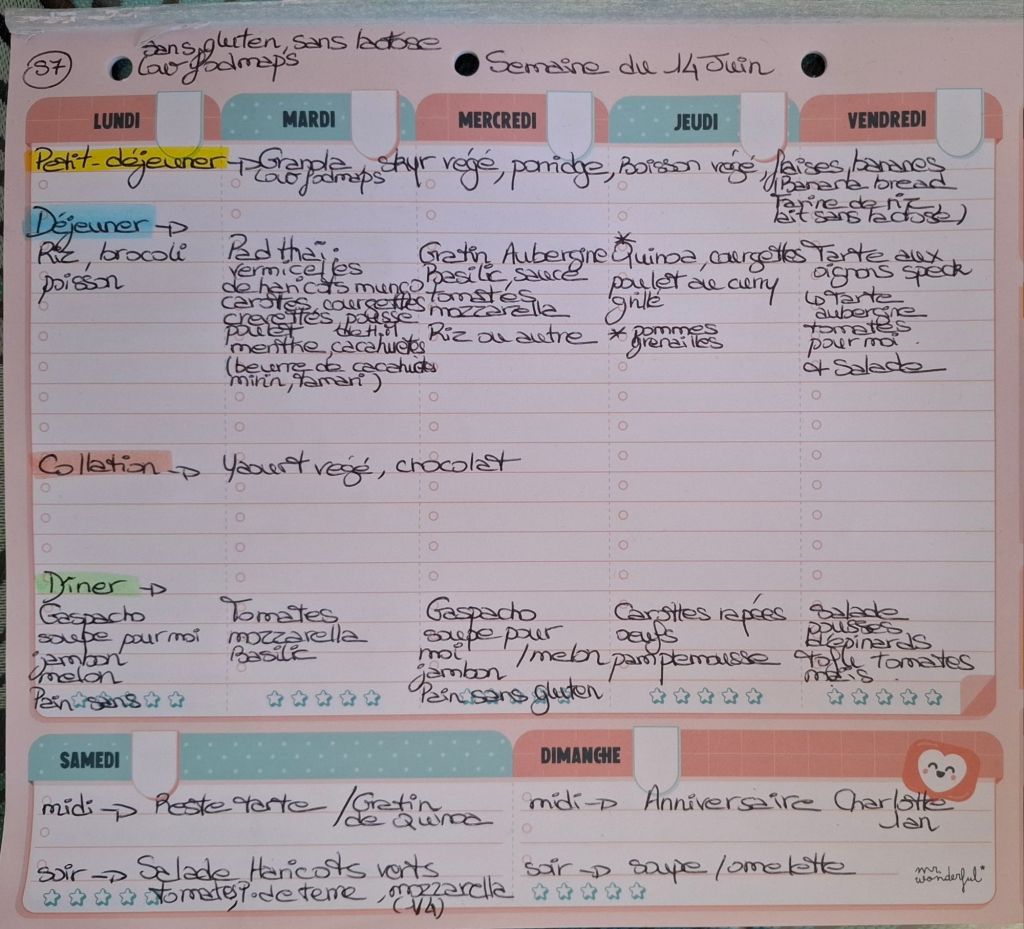 S7
sans gluten, sans lactose
Low fodmaps
Semaine du 14 Juin
LUNDI
MARDI
MERCREDI
JEUDI
VENDREDI
Petit-déjeuner → Granola, skyr végé, porridge, Boisson végé, fraises, bananes
Low fodmaps
(Banana bread
farine de riz
lait sans lactose)
Déjeuner →
Riz, brocoli
poisson
Pad thaï :
vermicelles
de haricots mungo
carottes, courgettes
crevettes, pousse
poulet
menthe, cacahuètes
(beurre de cacahuètes
mirin, tamari)
Gratin Aubergine
Basilic, sauce
tomates
mozzarella
Riz ou autre
*
Quinoa, courgettes
poulet au curry
grillé
* pommes
grenailles
Tarte aux
oignons speck
↳ Tarte
aubergine
tomates
pour moi.
et Salade
Collation → Yaourt végé, chocolat
Dîner →
Gaspacho
soupe pour moi
jambon
melon
Pain sans
Tomates
mozzarella
Basilic
Gaspacho
soupe pour
moi /melon
jambon
Pain sans gluten
Carottes rapées
oeufs
pamplemousse
Salade
pousses
d'épinards
tofu tomates
maïs
SAMEDI
midi → Reste tarte /Gratin
de Quinoa
soir → Salade Haricots verts
tomates, p. de terre, mozzarella
(1/4)
DIMANCHE
midi → Anniversaire Charlotte
Ian
soir → soupe /omelette
mr.
wonderful*